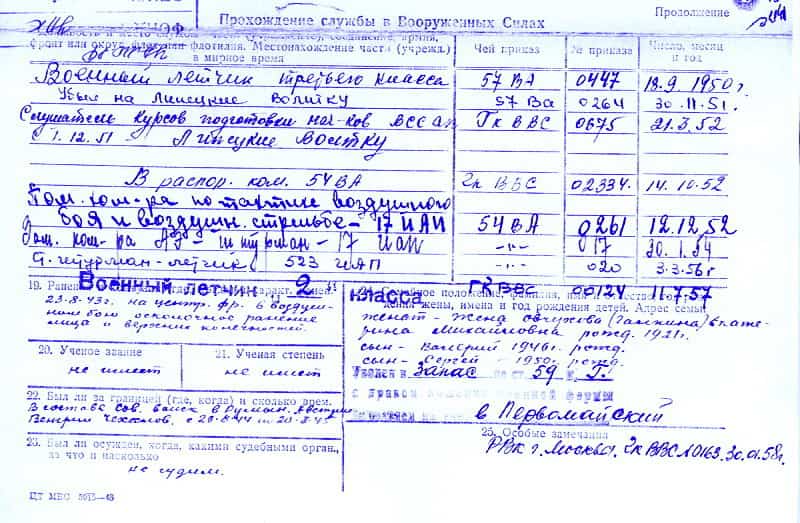 Прохождение службы в Вооруженных Силах
Продолжение
фронт или округ, флот или флотилия. Местонахождение части (учрежд.)
в мирное время
Чей приказ
№ приказа
Число, месяц
и год
Военный летчик третьего класса 57 ВА 0447 18.9.1950г.
Убыл на Липецкие 57 Ва 0264 30.11.51.
Слушатель курсов подготовки Гк ВВС 0675 21.3.52
с 1.12.51 -
В распор. ком. 54 ВА Гк ВВС 02334 14.10.52
Пом. ком-ра по тактике воздушного
боя и воздушн. стрельбе - 17 ИАП 54 ВА 0261 12.12.52
Зам. ком-ра АЭ - штурман - 17 ИАП -"- 017 30.1.54
523 ИАП -"- 020 3.3.56г
Военный летчик „2" Класса ГК ВВС 00124 11.7.57
23-8-43г. на центр. фр. в воздуш-
ном бою осколочное ранение
лица и верхних конечностей.
20. Ученое звание
не имеет
21. Ученая степень
не имеет
22. Был ли за границей (где, когда) и сколько врем.
В составе Сов. войск в Румын. Австрии
Венгрии Чехослов. с 29-8-44
23. Был ли осужден, когда, какими судебными орган.,
за что и насколько
не судим.
ЦТ МВС
24. Семейное положение, фамилия, имя и отчество, го-
дения жены, имена и год рождения детей. Адрес семьи
женат - жена (Галкина) Екате-
рина Михайловна рожд. 1921г.
сын - Валерий 1946г. рожд.
сын - Сергей - 1950г. рожд.
Уволен в Запас по ст. 59 п. Г.
с правом ношения военной формы
в Первомайский
25. Особые замечания
РВК г. Москвы. Гк ВВС №0163. 30.01.58г.